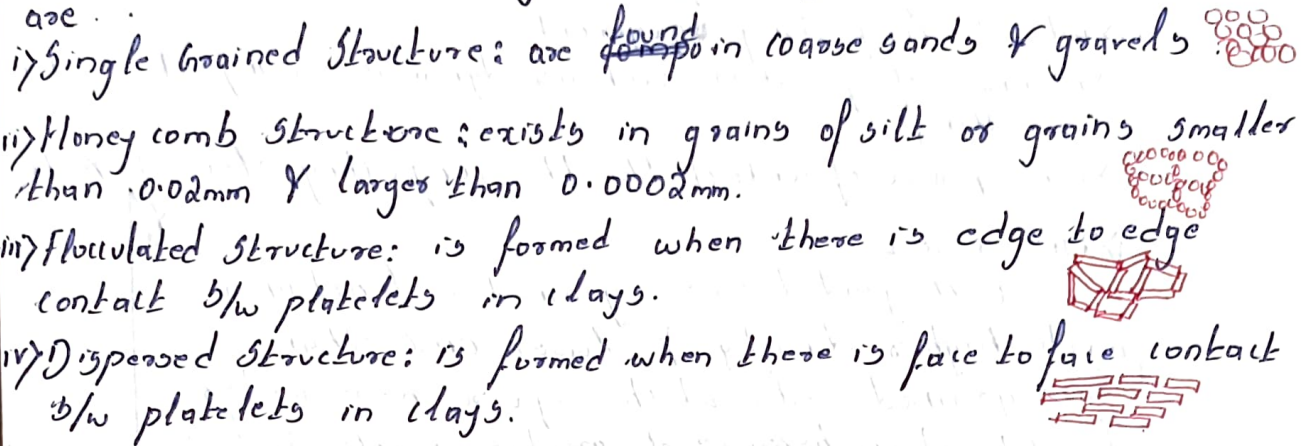 are.
i) Single Grained Structure: are found in coarse sands & gravels
ii) Honey comb structure: exists in grains of silt or grains smaller
than 0.02mm & larger than 0.0002mm.
iii) Flocculated structure: is formed when there is edge to edge
contact b/w platelets in clays.
iv) Dispersed structure: is formed when there is face to face contact
b/w platelets in clays.